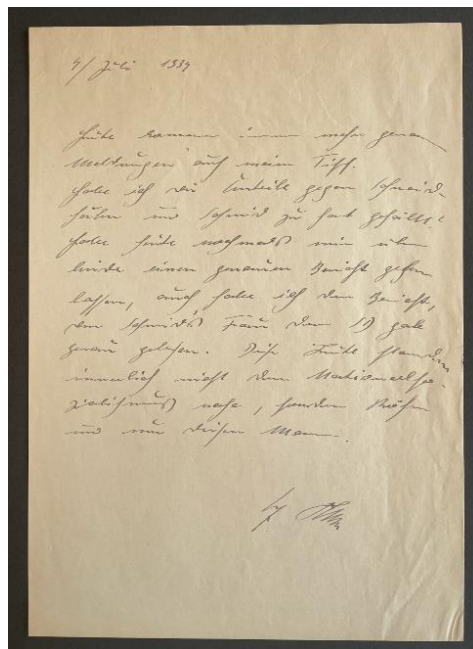 4/ Juli 1934
Heute kommen immer mehr genaue
Meldungen auf meinen Tisch.
Habe ich die Urteile gegen Schneid-
huber und Schmid zu hart gefällt?
Habe heute nochmals mir über
beide einen genauen Bericht geben
lassen, auch habe ich den Bericht,
den Schmids Frau dem SD gab
genau gelesen. Diese Leute standen
innerlich nicht dem Nationalso-
zialismus nahe, sondern Röhm
und nur diesem Mann.